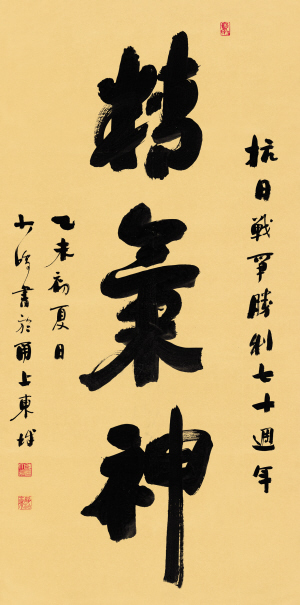 抗日戰爭勝利七十週年
精氣神
乙未初夏日
書於
上東城